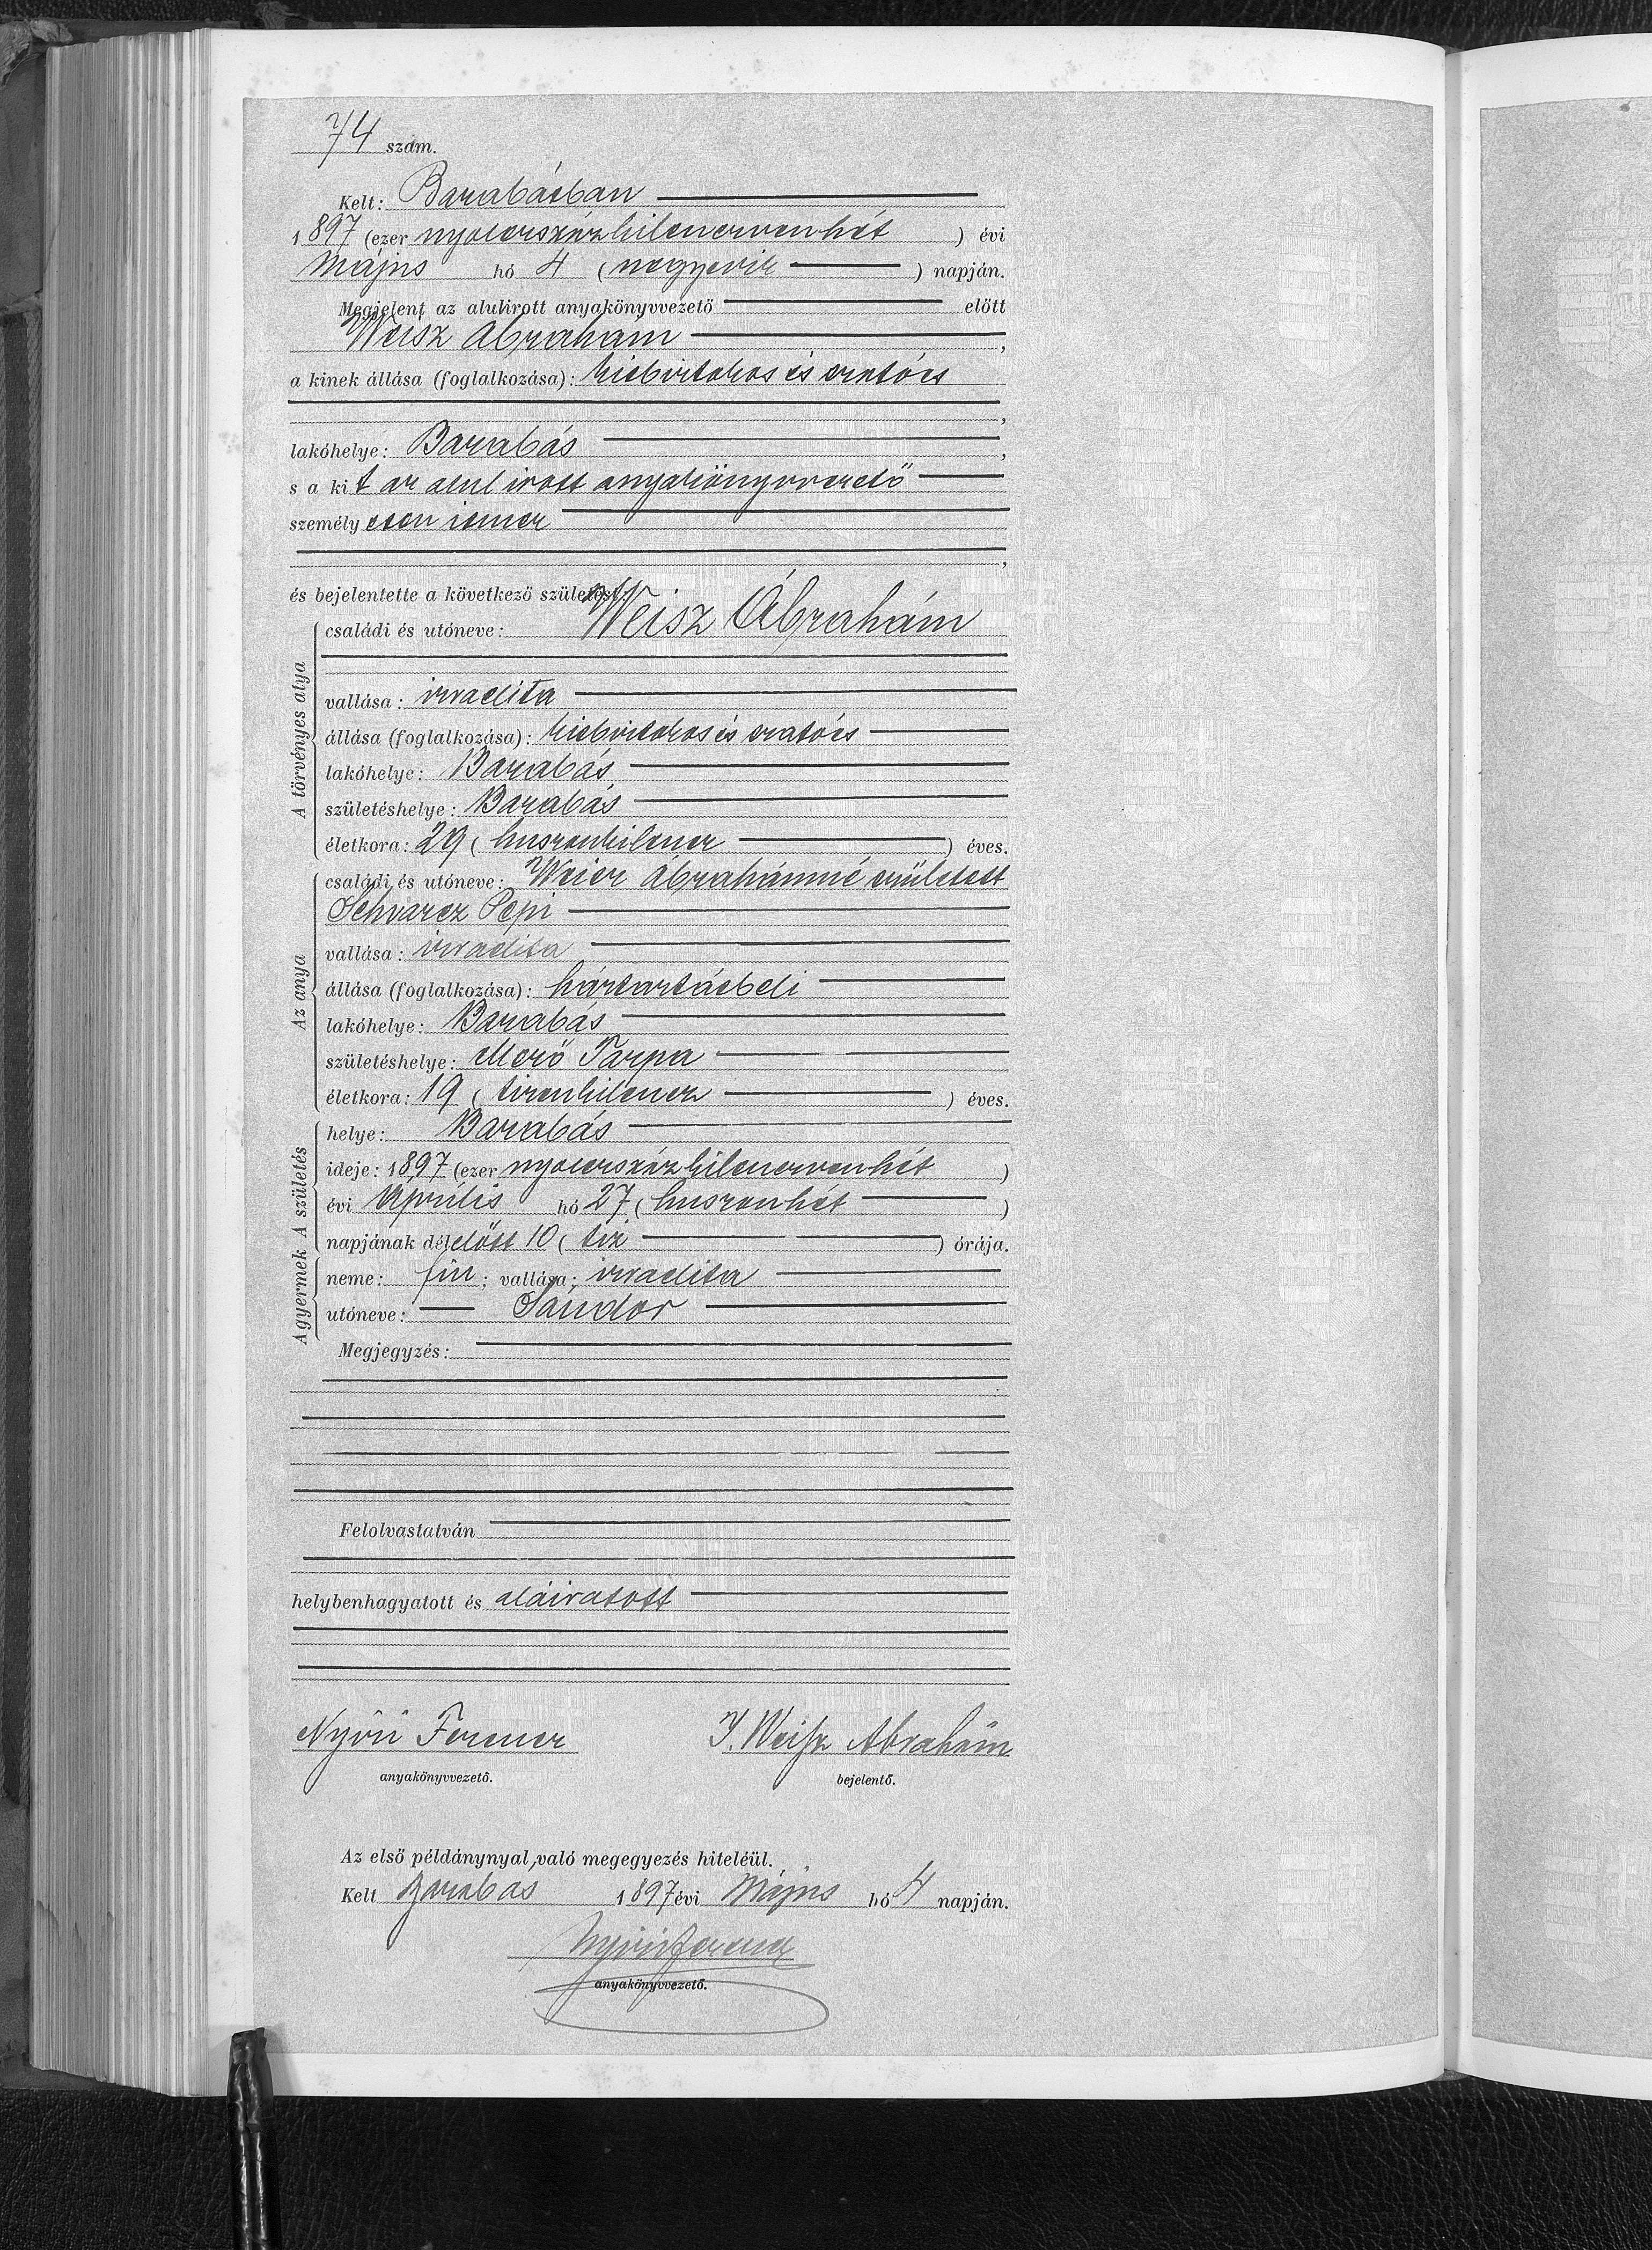 74 szám.
Kelt: Barabásban
1897 (ezer nyolczszázkilenczvenhét) évi
Május hó 4 (negyedik) napján.
Megjelent az alulirott anyakönyvvezető előtt
Weisz Ábrahám,
a kinek állása (foglalkozása): kisbirtokos és szatócs
,
lakóhelye: Barabás,
s a kit az alul irott anyakönyvvezető
személyesen ismer
,
és bejelentette a következő születést:
A törvényes atya
családi és utóneve: Weisz Ábrahám
vallása: izraelita
állása (foglalkozása): kisbirtokos és szatócs
lakóhelye: Barabás
születéshelye: Barabás
életkora: 29 (huszonkilencz) éves.
Az anya
családi és utóneve: Weisz Ábrahámné született
Schvarcz Pepi
vallása: izraelita
állása (foglalkozása): háztartásbeli
lakóhelye: Barabás
születéshelye: Mező Tarpa
életkora: 19 (tizenkilencz) éves.
A születés
helye: Barabás
ideje: 1897 (ezer nyolczszázkilenczvenhét)
évi Április hó 27 (huszonhét)
napjának délelőtt 10 (tiz) órája.
A gyermek
neme: fiu; vallása: izraelita
utóneve: Sándor
Megjegyzés:
Felolvastatván
helybenhagyatott és aláiratott
Nyiri Ferencz I. Weisz Abrahám
anyakönyvvezető. bejelentő.
Az első példánynyal való megegyezés hiteléül.
Kelt Barabas 1897 évi Május hó 4 napján.
Nyiri Ferencz
anyakönyvvezető.